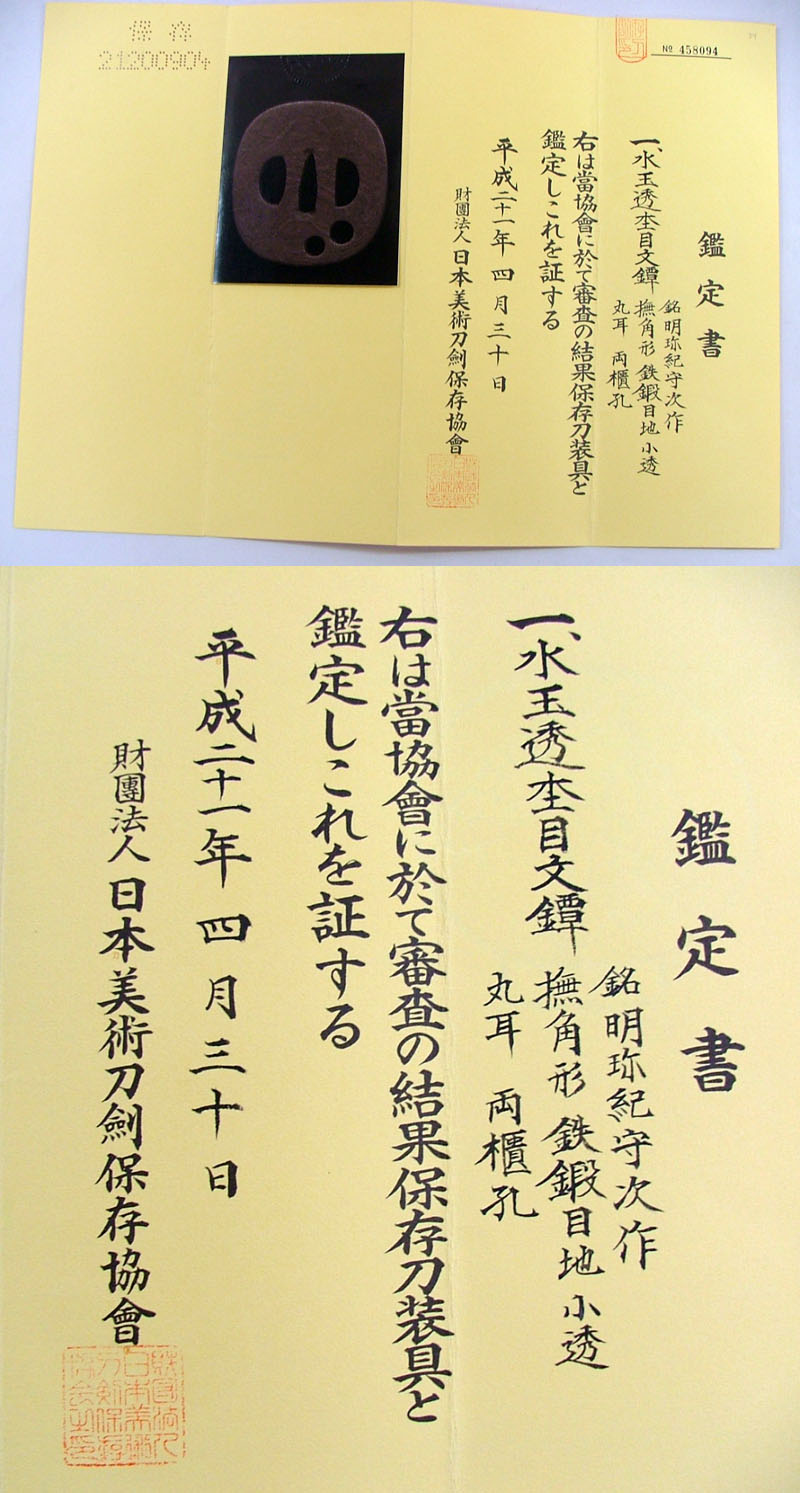 № 458094
鑑定書
一、水玉透杢目文鐔
銘 明珎紀守次作
撫角形 鉄鍛目地 小透
丸耳 両櫃孔
右は當協會に於て審査の結果保存刀装具と
鑑定しこれを証する
平成二十一年 四月三十日
財團法人 日本美術刀劍保存協會
保存
21200904
鑑定書
一、水玉透杢目文鐔
銘 明珎紀守次作
撫角形 鉄鍛目地 小透
丸耳 両櫃孔
右は當協會に於て審査の結果保存刀装具と
鑑定しこれを証する
平成二十一年 四月三十日
財團法人 日本美術刀劍保存協會